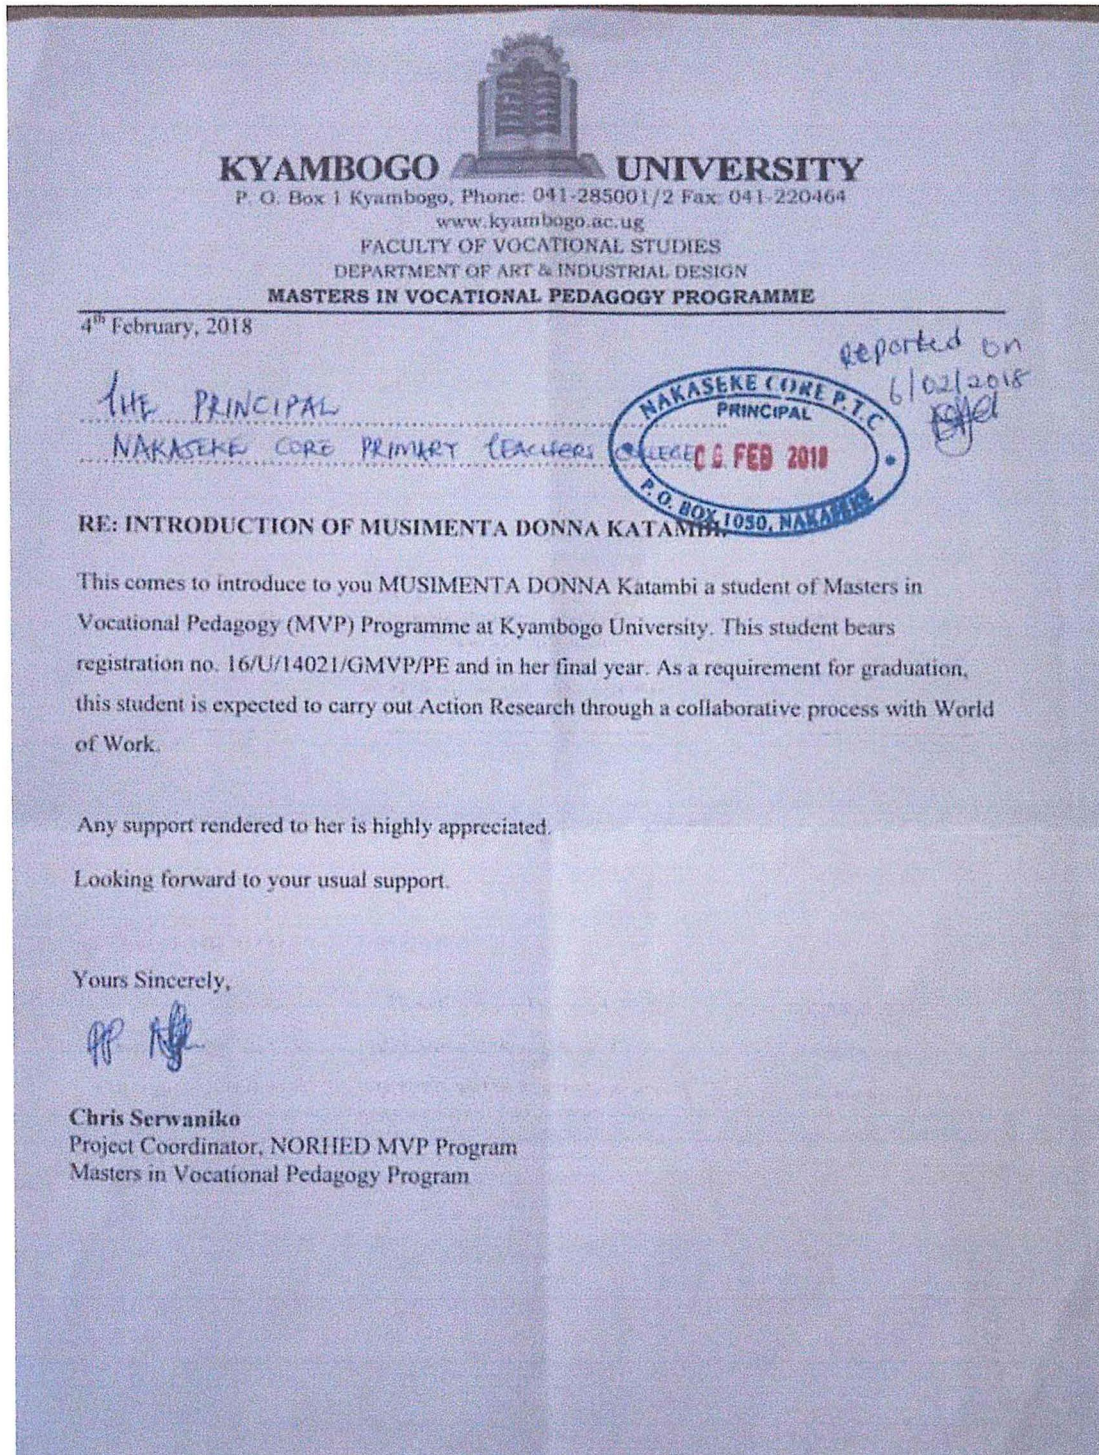 KYAMBOGO UNIVERSITY
P. O. Box 1 Kyambogo, Phone: 041-285001/2 Fax: 041-220464
www.kyambogo.ac.ug
FACULTY OF VOCATIONAL STUDIES
DEPARTMENT OF ART & INDUSTRIAL DESIGN
MASTERS IN VOCATIONAL PEDAGOGY PROGRAMME
4th February, 2018
Reported on
6/02/2018
THE PRINCIPAL
NAKASEKE CORE PRIMARY TEACHERS COLLEGE
NAKASEKE CORE P.T.C
PRINCIPAL
06 FEB 2018
P. O. BOX 1050, NAKASEKE
RE: INTRODUCTION OF MUSIMENTA DONNA KATAMBI.
This comes to introduce to you MUSIMENTA DONNA Katambi a student of Masters in
Vocational Pedagogy (MVP) Programme at Kyambogo University. This student bears
registration no. 16/U/14021/GMVP/PE and in her final year. As a requirement for graduation,
this student is expected to carry out Action Research through a collaborative process with World
of Work.
Any support rendered to her is highly appreciated.
Looking forward to your usual support.
Yours Sincerely,
PP
Chris Serwaniko
Project Coordinator, NORHED MVP Program
Masters in Vocational Pedagogy Program